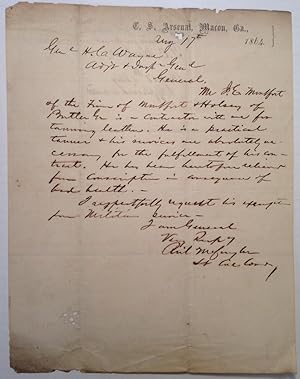 C. S. Arsenal, Macon, Ga.,
Aug 17th 1864
Genl H. C. Wayne
Adjt & Insp Genl
General,
Mr J. E. Moffat
of the Firm of Moffat & Holsey of
Butler Ga is a contractor with me for
tanning leather. He is a practical
tanner & his services are absolutely ne-
cessary for the fulfillment of his con-
tract. He has been heretofore relieved
from Conscription in consequence of
bad health.—
I respectfully request his exempt
from Militia service—
I am General
Very Respy
Lt Col Comdg